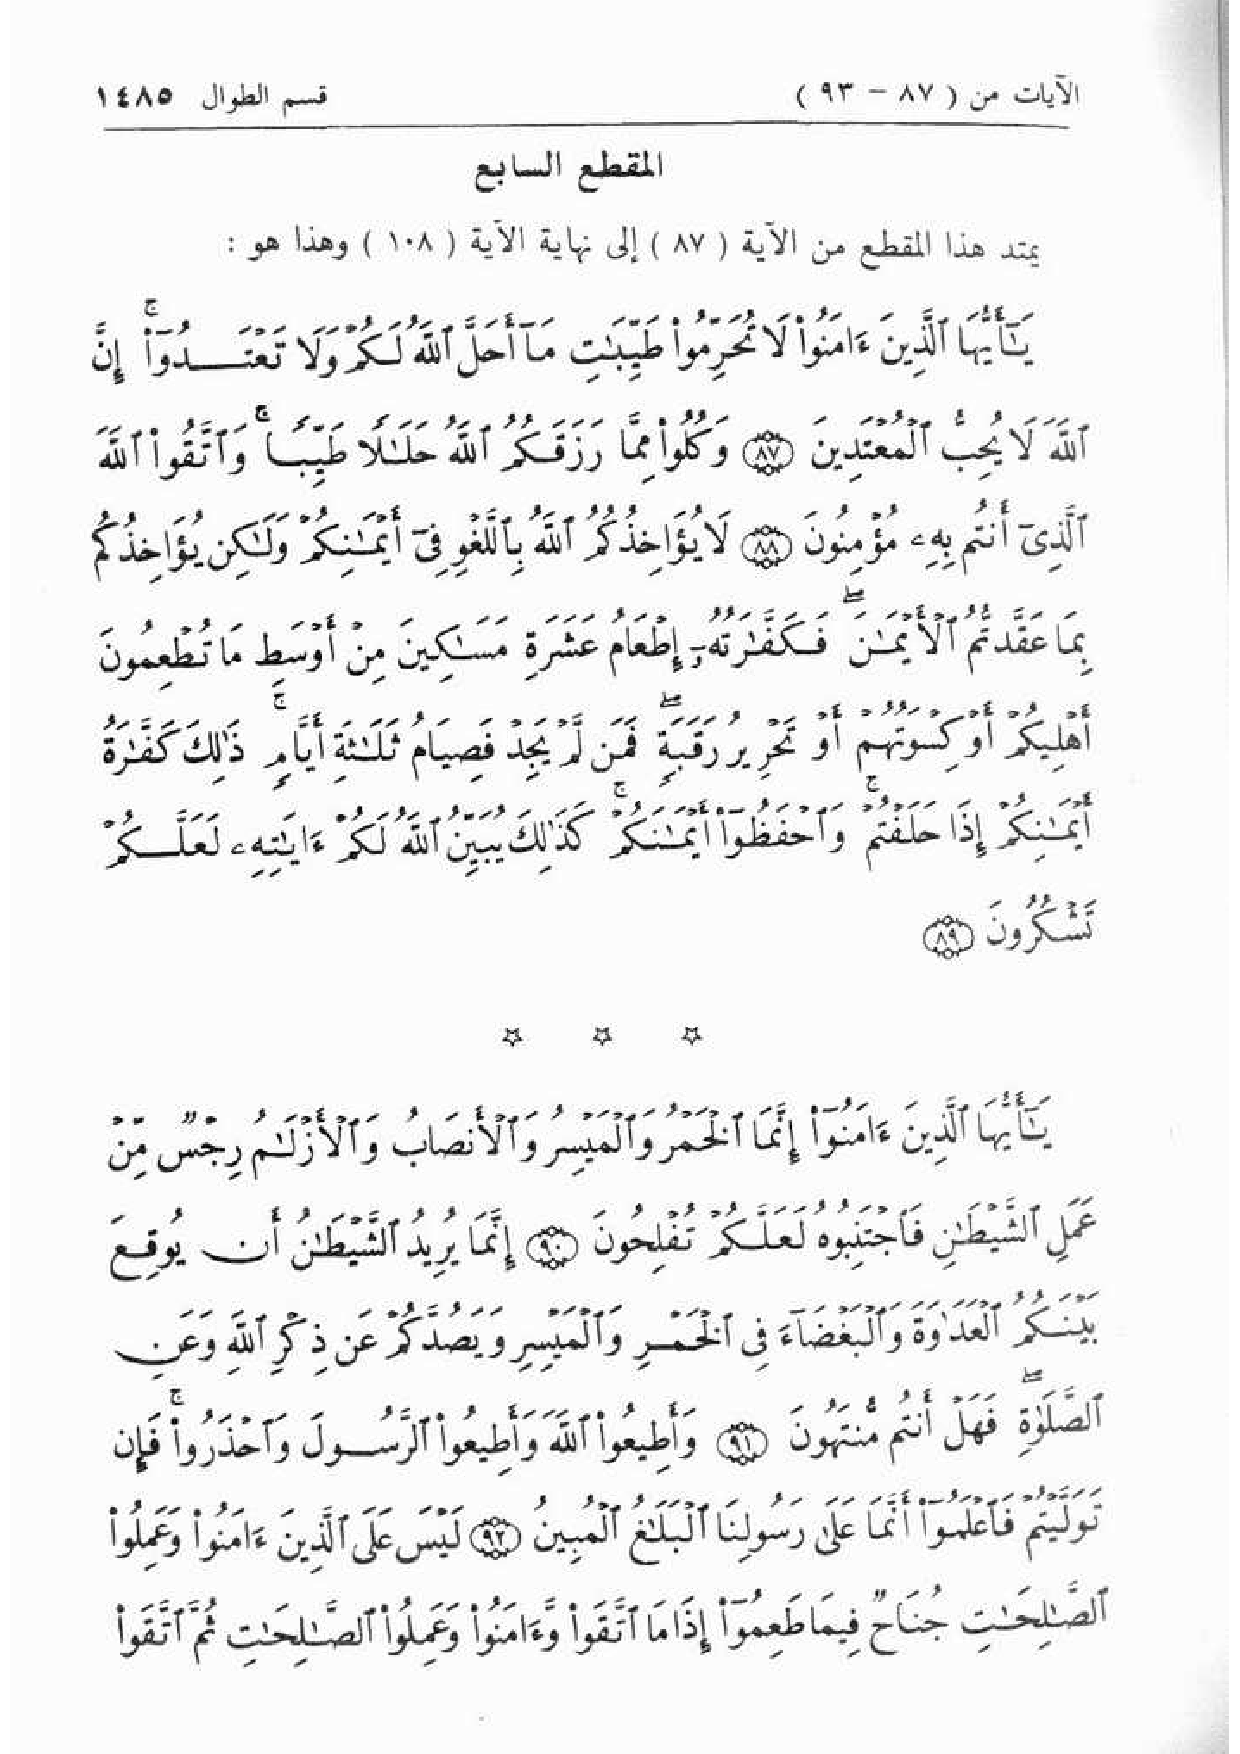 الآيات من ( ٨٧ – ٩٣ ) قسم الطوال ١٤٨٥
المقطع السابع
يمتد هذا المقطع من الآية ( ٨٧ ) إلى نهاية الآية ( ١٠٨ ) وهذا هو :
يَٰٓأَيُّهَا ٱلَّذِينَ ءَامَنُوا۟ لَا تُحَرِّمُوا۟ طَيِّبَٰتِ مَآ أَحَلَّ ٱللَّهُ لَكُمْ وَلَا تَعْتَدُوٓا۟ ۚ إِنَّ
ٱللَّهَ لَا يُحِبُّ ٱلْمُعْتَدِينَ ٨٧ وَكُلُوا۟ مِمَّا رَزَقَكُمُ ٱللَّهُ حَلَٰلًا طَيِّبًا ۚ وَٱتَّقُوا۟ ٱللَّهَ
ٱلَّذِىٓ أَنتُم بِهِۦ مُؤْمِنُونَ ٨٨ لَا يُؤَاخِذُكُمُ ٱللَّهُ بِٱللَّغْوِ فِىٓ أَيْمَٰنِكُمْ وَلَٰكِن يُؤَاخِذُكُم
بِمَا عَقَّدتُّمُ ٱلْأَيْمَٰنَ ۖ فَكَفَّٰرَتُهُۥٓ إِطْعَامُ عَشَرَةِ مَسَٰكِينَ مِنْ أَوْسَطِ مَا تُطْعِمُونَ
أَهْلِيكُمْ أَوْ كِسْوَتُهُمْ أَوْ تَحْرِيرُ رَقَبَةٍ ۖ فَمَن لَّمْ يَجِدْ فَصِيَامُ ثَلَٰثَةِ أَيَّامٍ ۚ ذَٰلِكَ كَفَّٰرَةُ
أَيْمَٰنِكُمْ إِذَا حَلَفْتُمْ ۚ وَٱحْفَظُوٓا۟ أَيْمَٰنَكُمْ ۚ كَذَٰلِكَ يُبَيِّنُ ٱللَّهُ لَكُمْ ءَايَٰتِهِۦ لَعَلَّكُمْ
تَشْكُرُونَ ٨٩
☆ ☆ ☆
يَٰٓأَيُّهَا ٱلَّذِينَ ءَامَنُوٓا۟ إِنَّمَا ٱلْخَمْرُ وَٱلْمَيْسِرُ وَٱلْأَنصَابُ وَٱلْأَزْلَٰمُ رِجْسٌ مِّنْ
عَمَلِ ٱلشَّيْطَٰنِ فَٱجْتَنِبُوهُ لَعَلَّكُمْ تُفْلِحُونَ ٩٠ إِنَّمَا يُرِيدُ ٱلشَّيْطَٰنُ أَن يُوقِعَ
بَيْنَكُمُ ٱلْعَدَٰوَةَ وَٱلْبَغْضَآءَ فِى ٱلْخَمْرِ وَٱلْمَيْسِرِ وَيَصُدَّكُمْ عَن ذِكْرِ ٱللَّهِ وَعَنِ
ٱلصَّلَوٰةِ ۖ فَهَلْ أَنتُم مُّنتَهُونَ ٩١ وَأَطِيعُوا۟ ٱللَّهَ وَأَطِيعُوا۟ ٱلرَّسُولَ وَٱحْذَرُوا۟ ۚ فَإِن
تَوَلَّيْتُمْ فَٱعْلَمُوٓا۟ أَنَّمَا عَلَىٰ رَسُولِنَا ٱلْبَلَٰغُ ٱلْمُبِينُ ٩٢ لَيْسَ عَلَى ٱلَّذِينَ ءَامَنُوا۟ وَعَمِلُوا۟
ٱلصَّٰلِحَٰتِ جُنَاحٌ فِيمَا طَعِمُوٓا۟ إِذَا مَا ٱتَّقَوا۟ وَّءَامَنُوا۟ وَعَمِلُوا۟ ٱلصَّٰلِحَٰتِ ثُمَّ ٱتَّقَوا۟